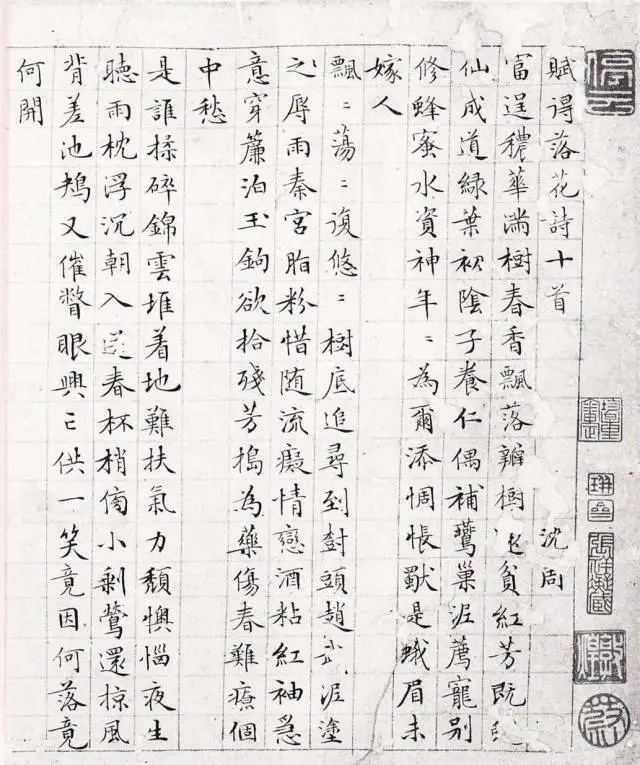 賦得落花詩十首 沈周
富逞穠華滿樹春香飄落瓣樹貧紅芳既
仙成道綠葉初陰子養仁偶補鶯巢泥薦寵別
修蜂蜜水資神年〻為爾添惆悵是蛾眉未
嫁人
飄〻蕩〻復悠〻樹底追尋到樹頭趙武泥塗
之辱雨秦宮脂粉惜隨流癡情戀酒粘紅袖急
意穿簾泊玉鉤欲拾殘芳搗為藥傷春難療個
中愁
是誰揉碎錦雲堆着地難扶氣力頹懊惱夜生
聽雨枕浮沉朝入送春杯梢傍小剩鶯還掠風
背差池鳩又催瞥眼興亡供一笑竟因何落竟
何開